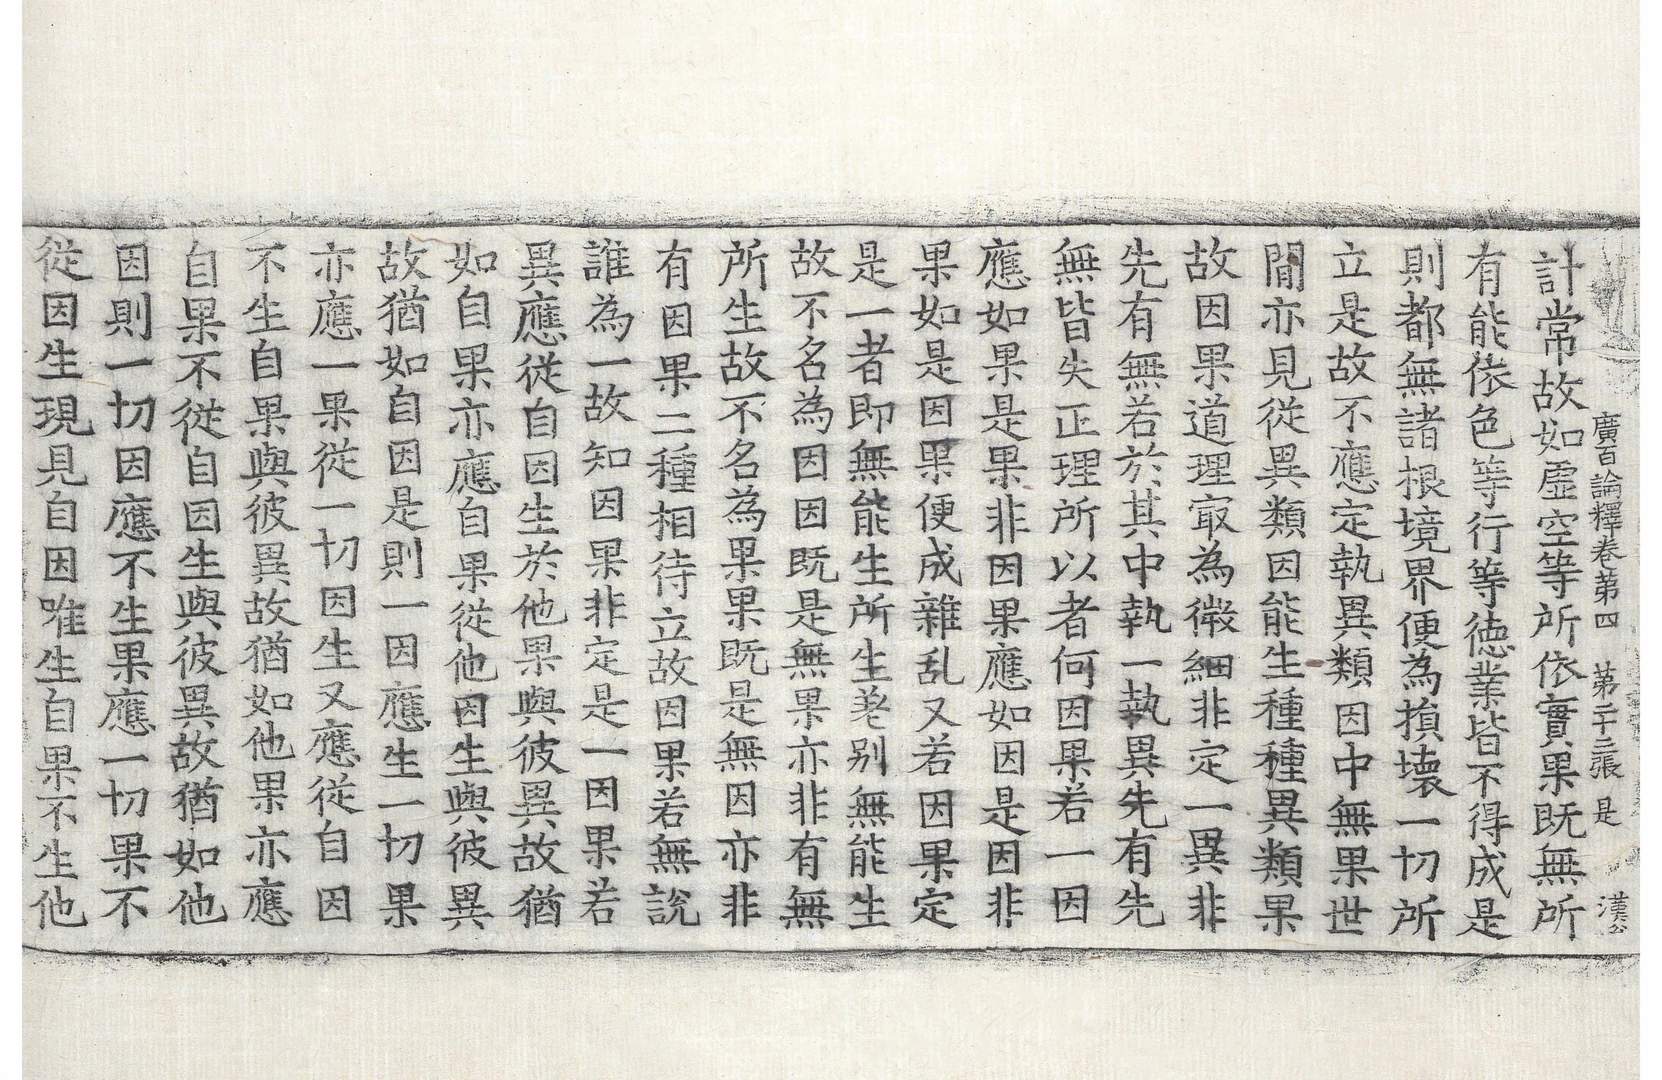 廣百論釋卷第四 第二十三張 是 漢公
計常故如虛空等所依實果既無所
有能依色等行等徳業皆不得成是
則都無諸根境界便為損壞一切所
立是故不應定執異類因中無果世
間亦見從異類因能生種種異類果
故因果道理㝡為微細非定一異非
先有無若於其中執一執異先有先
無皆失正理所以者何因果若一因
應如果是果非因果應如因是因非
果如是因果便成雜乱又若因果定
是一者即無能生所生差别無能生
故不名為因因既是無果亦非有無
所生故不名為果果既是無因亦非
有因果二種相待立故因果若無說
誰為一故知因果非定是一因果若
異應從自因生於他果與彼異故猶
如自果亦應自果從他因生與彼異
故猶如自因是則一因應生一切果
亦應一果從一切因生又應從自因
不生自果與彼異故猶如他果亦應
自果不從自因生與彼異故猶如他
因則一切因應不生果應一切果不
從因生現見自因唯生自果不生他